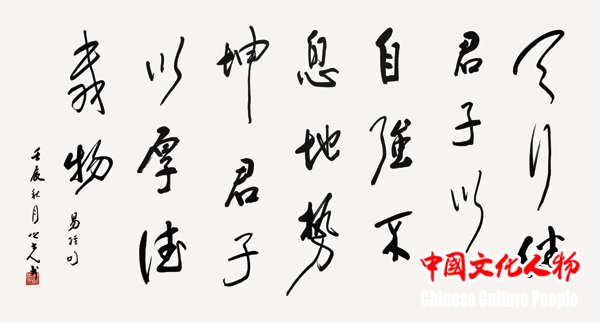 天行健
君子以
自強不
息地勢
坤君子
以厚德
載物
易经句
壬辰秋月
中國文化人物
Chinese Culture People